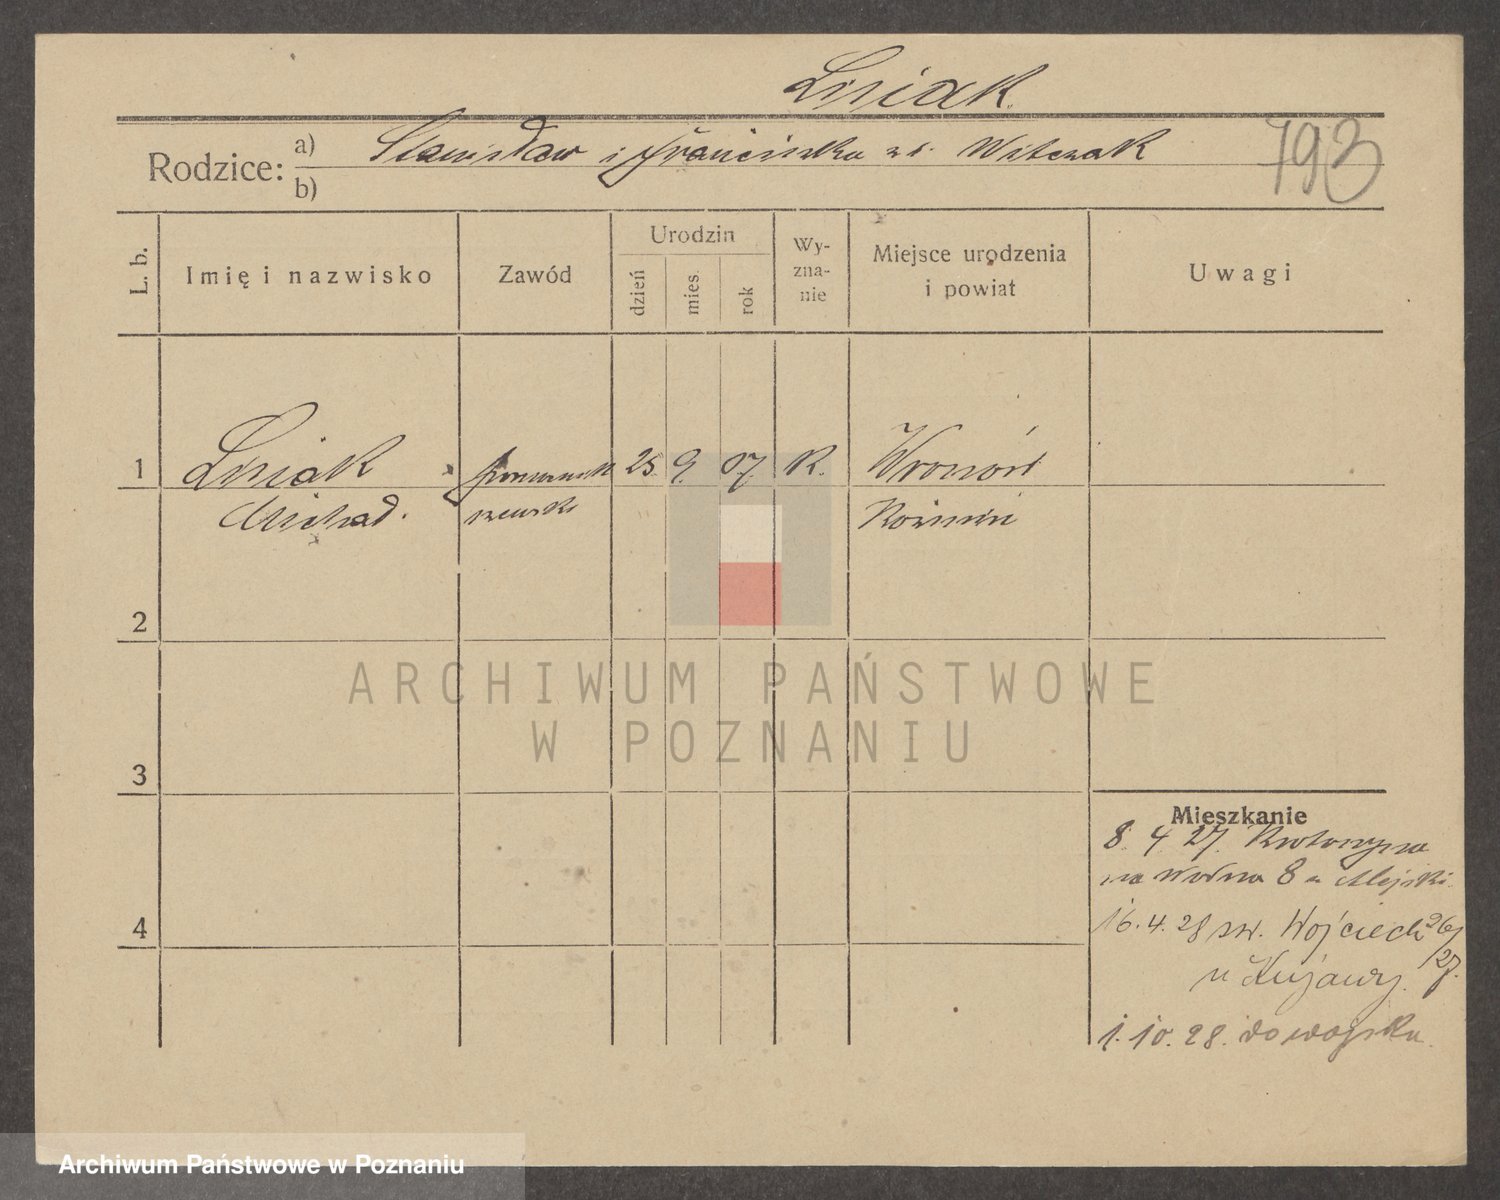 Lisiak
793
Rodzice: a) Stanisław i Franciszka z d. Witczak
b)
L. b.
Imię i nazwisko
Zawód
Urodzin
dzień
mies.
rok
Wy-
zna-
nie
Miejsce urodzenia
i powiat
Uwagi
1 Lisiak 25 9. 07. K. Wronów
Michał. szewski Koźmin
2
3
4
Mieszkanie
8. 4 27. Krotoszyna
na Wodna 8
16. 4. 28 św. Wojciech 26/27.
u Kujawy.
1. 10. 28. do wojska.
ARCHIWUM PAŃSTWOWE
W POZNANIU
Archiwum Państwowe w Poznaniu